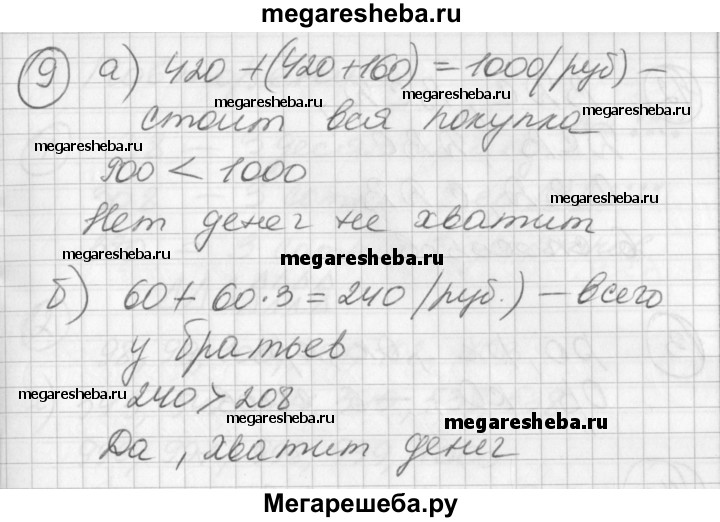 megaresheba.ru
9 а) 420 + (420+160) = 1000 (руб) –
megaresheba.ru megaresheba.ru
стоит вся покупка
megaresheba.ru megaresheba.ru
900 < 1000
Нет денег не хватит
megaresheba.ru megaresheba.ru megaresheba.ru
б) 60 + 60·3 = 240 (руб.) – всего
у братьев
megaresheba.ru megaresheba.ru
240 > 208
megaresheba.ru megaresheba.ru
Да, хватит денег
Мегарешеба.ру